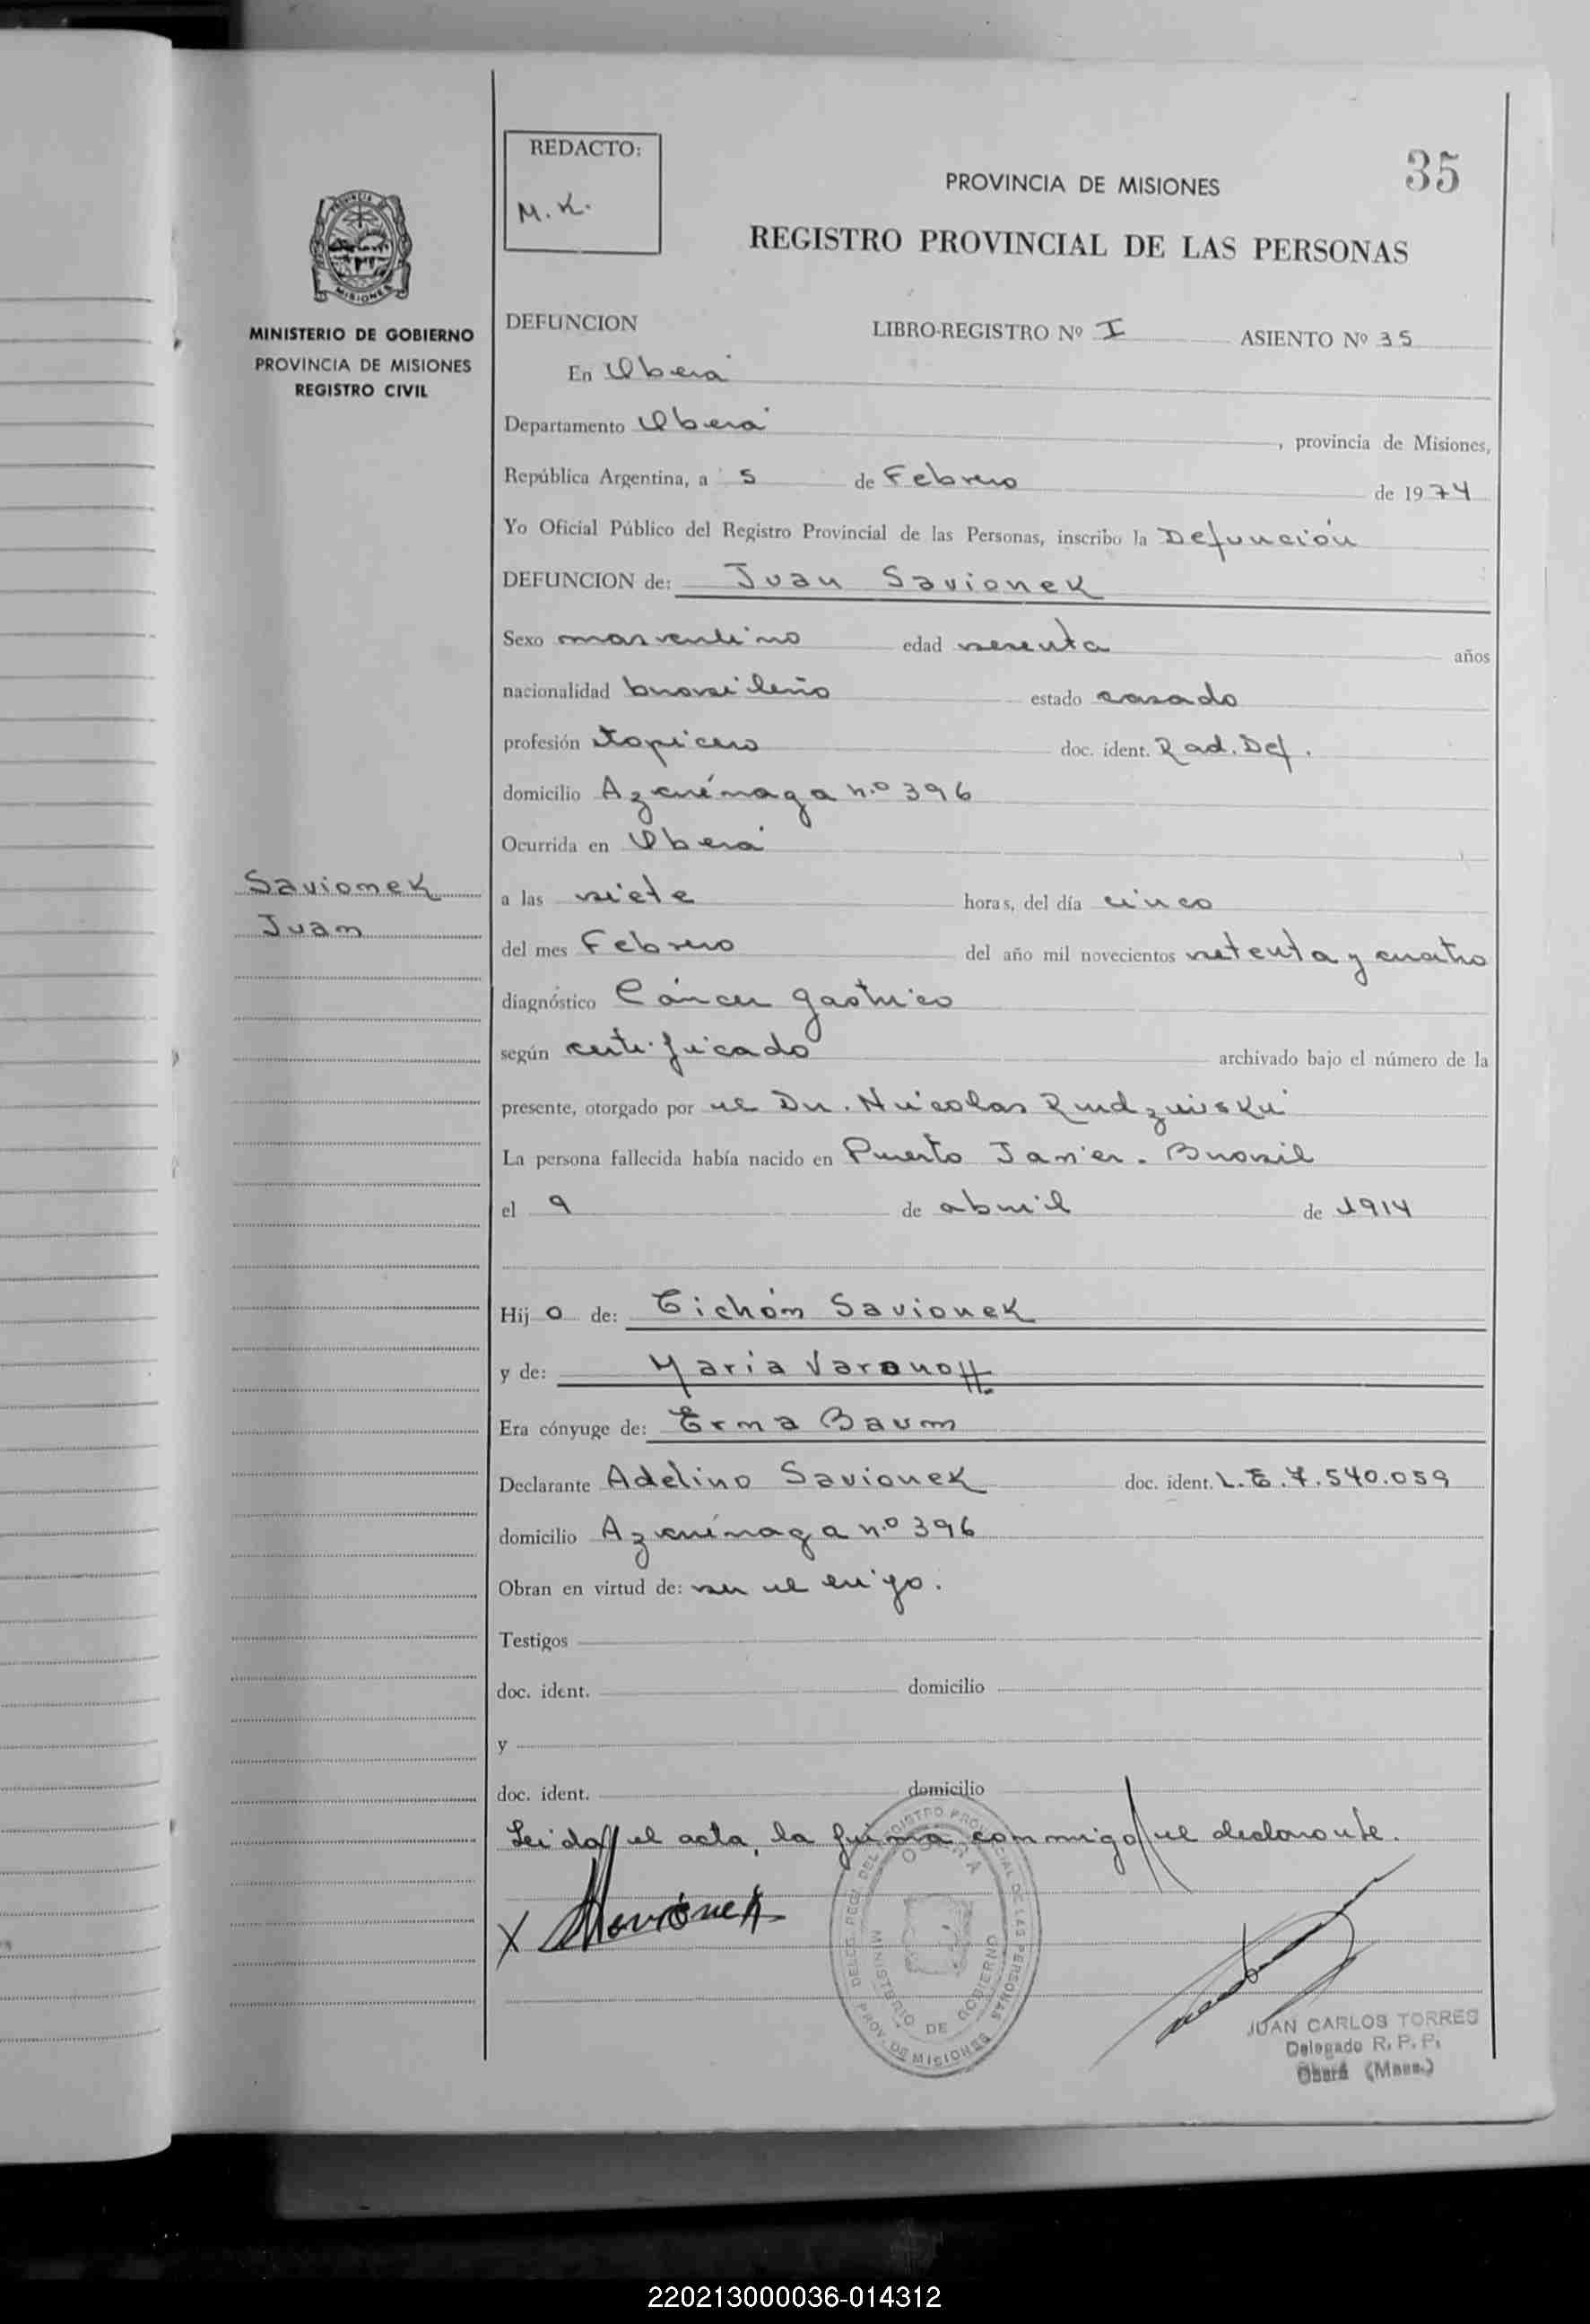 35
REDACTO:
M. K.
PROVINCIA DE MISIONES
REGISTRO PROVINCIAL DE LAS PERSONAS
MISIONES
MINISTERIO DE GOBIERNO
PROVINCIA DE MISIONES
REGISTRO CIVIL
Savionek
Juan
DEFUNCION LIBRO-REGISTRO Nº I ASIENTO Nº 35
En Oberá
Departamento Oberá, provincia de Misiones,
República Argentina, a 5 de Febrero de 1974
Yo Oficial Público del Registro Provincial de las Personas, inscribo la Defunción
DEFUNCION de: Juan Savionek
Sexo masculino edad sesenta años
nacionalidad brasileño estado casado
profesión tapicero doc. ident. Rad. Def.
domicilio Azcuénaga n.º 396
Ocurrida en Oberá
a las siete horas, del día cinco
del mes Febrero del año mil novecientos setenta y cuatro
diagnóstico Cáncer gastrico
según certificado archivado bajo el número de la
presente, otorgado por el Dr. Nicolas Rudzuiski
La persona fallecida había nacido en Puerto Janier. Brasil
el 9 de abril de 1914
Hij o de: Tichón Savionek
y de: Maria Varonoff.
Era cónyuge de: Erma Baum
Declarante Adelino Savionek doc. ident. L. E. 7.540.059
domicilio Azcuénaga n.º 396
Obran en virtud de: ser el hijo.
Testigos
doc. ident. domicilio
y
doc. ident. domicilio
Leida el acta, la firma conmigo el declarante.
X Savionek
DELEG. REGI. DEL REGISTRO PROVINCIAL DE LAS PERSONAS
OBERA
MINISTERIO DE GOBIERNO
PROV. DE MISIONES
JUAN CARLOS TORRES
Delegado R. P. P.
Oberá (Mnes.)
220213000036-014312